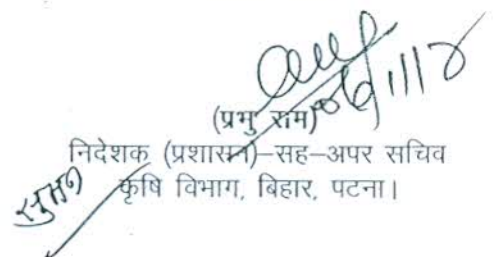 06/11/18
(प्रभु राम)
निदेशक (प्रशासन)–सह–अपर सचिव
कृषि विभाग, बिहार, पटना।